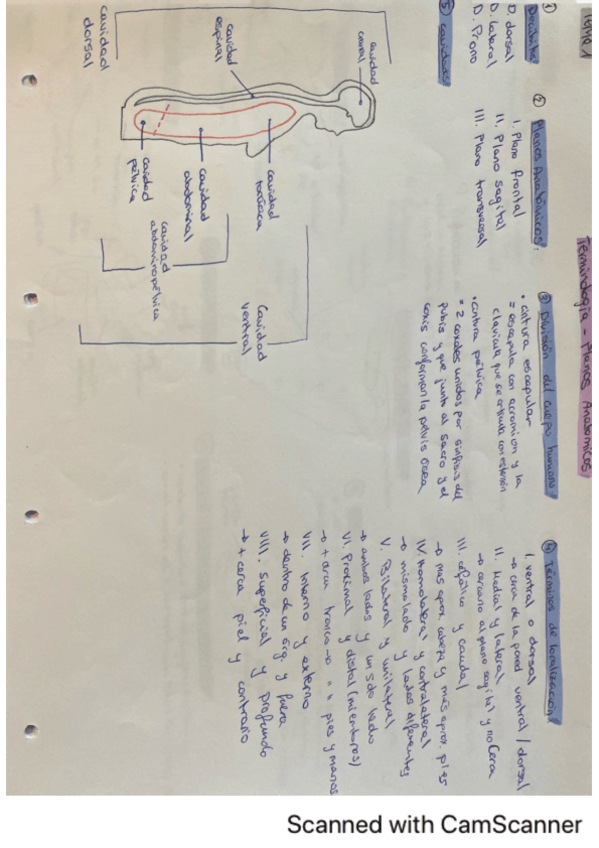 TEMA 1
Terminología - Planos Anatómicos
① Decúbitos
D. dorsal
D. lateral
D. Prono
② Planos Anatómicos:
I. Plano frontal
II. Plano sagital
III. Plano transversal
③ División del cuerpo humano:
• cintura escapular
= escapula con acromion y la
clavícula que se articula con esternón
• cintura pélvica
= 2 coxales unidos por sínfisis del
pubis y que junto al sacro y el
coxis conforman la pelvis ósea
④ Términos de localización:
I. ventral o dorsal
→ cerca de la pared ventral / dorsal
II. Medial y lateral
→ cercano al plano sagital y no cerca
III. cefálico y caudal
→ más aprox. cabeza y más aprox. pies
IV. Homolateral y contralateral
→ mismo lado y lados diferentes
V. Bilateral y unilateral
→ ambos lados y un solo lado
VI. Proximal y distal (miembros)
→ + cerca tronco → " " pies y manos
VII. Interno y externo
→ dentro de un órg. y fuera
VIII. Superficial y profundo
→ + cerca piel y contrario
⑤ cavidades
cavidad
craneal
cavidad
espinal
cavidad
dorsal
cavidad
torácica
cavidad
abdominal
cavidad
pélvica
cavidad
abdominopélvica
Cavidad
ventral
Scanned with CamScanner